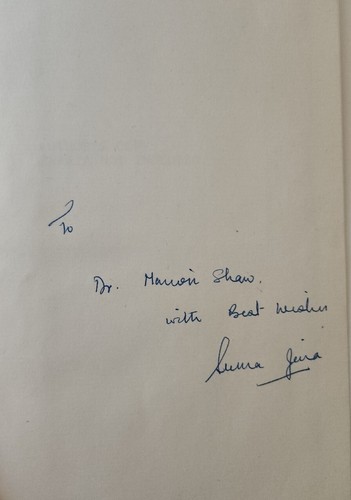 To
Dr. Marion Shaw.
with Best Wishes
Suma